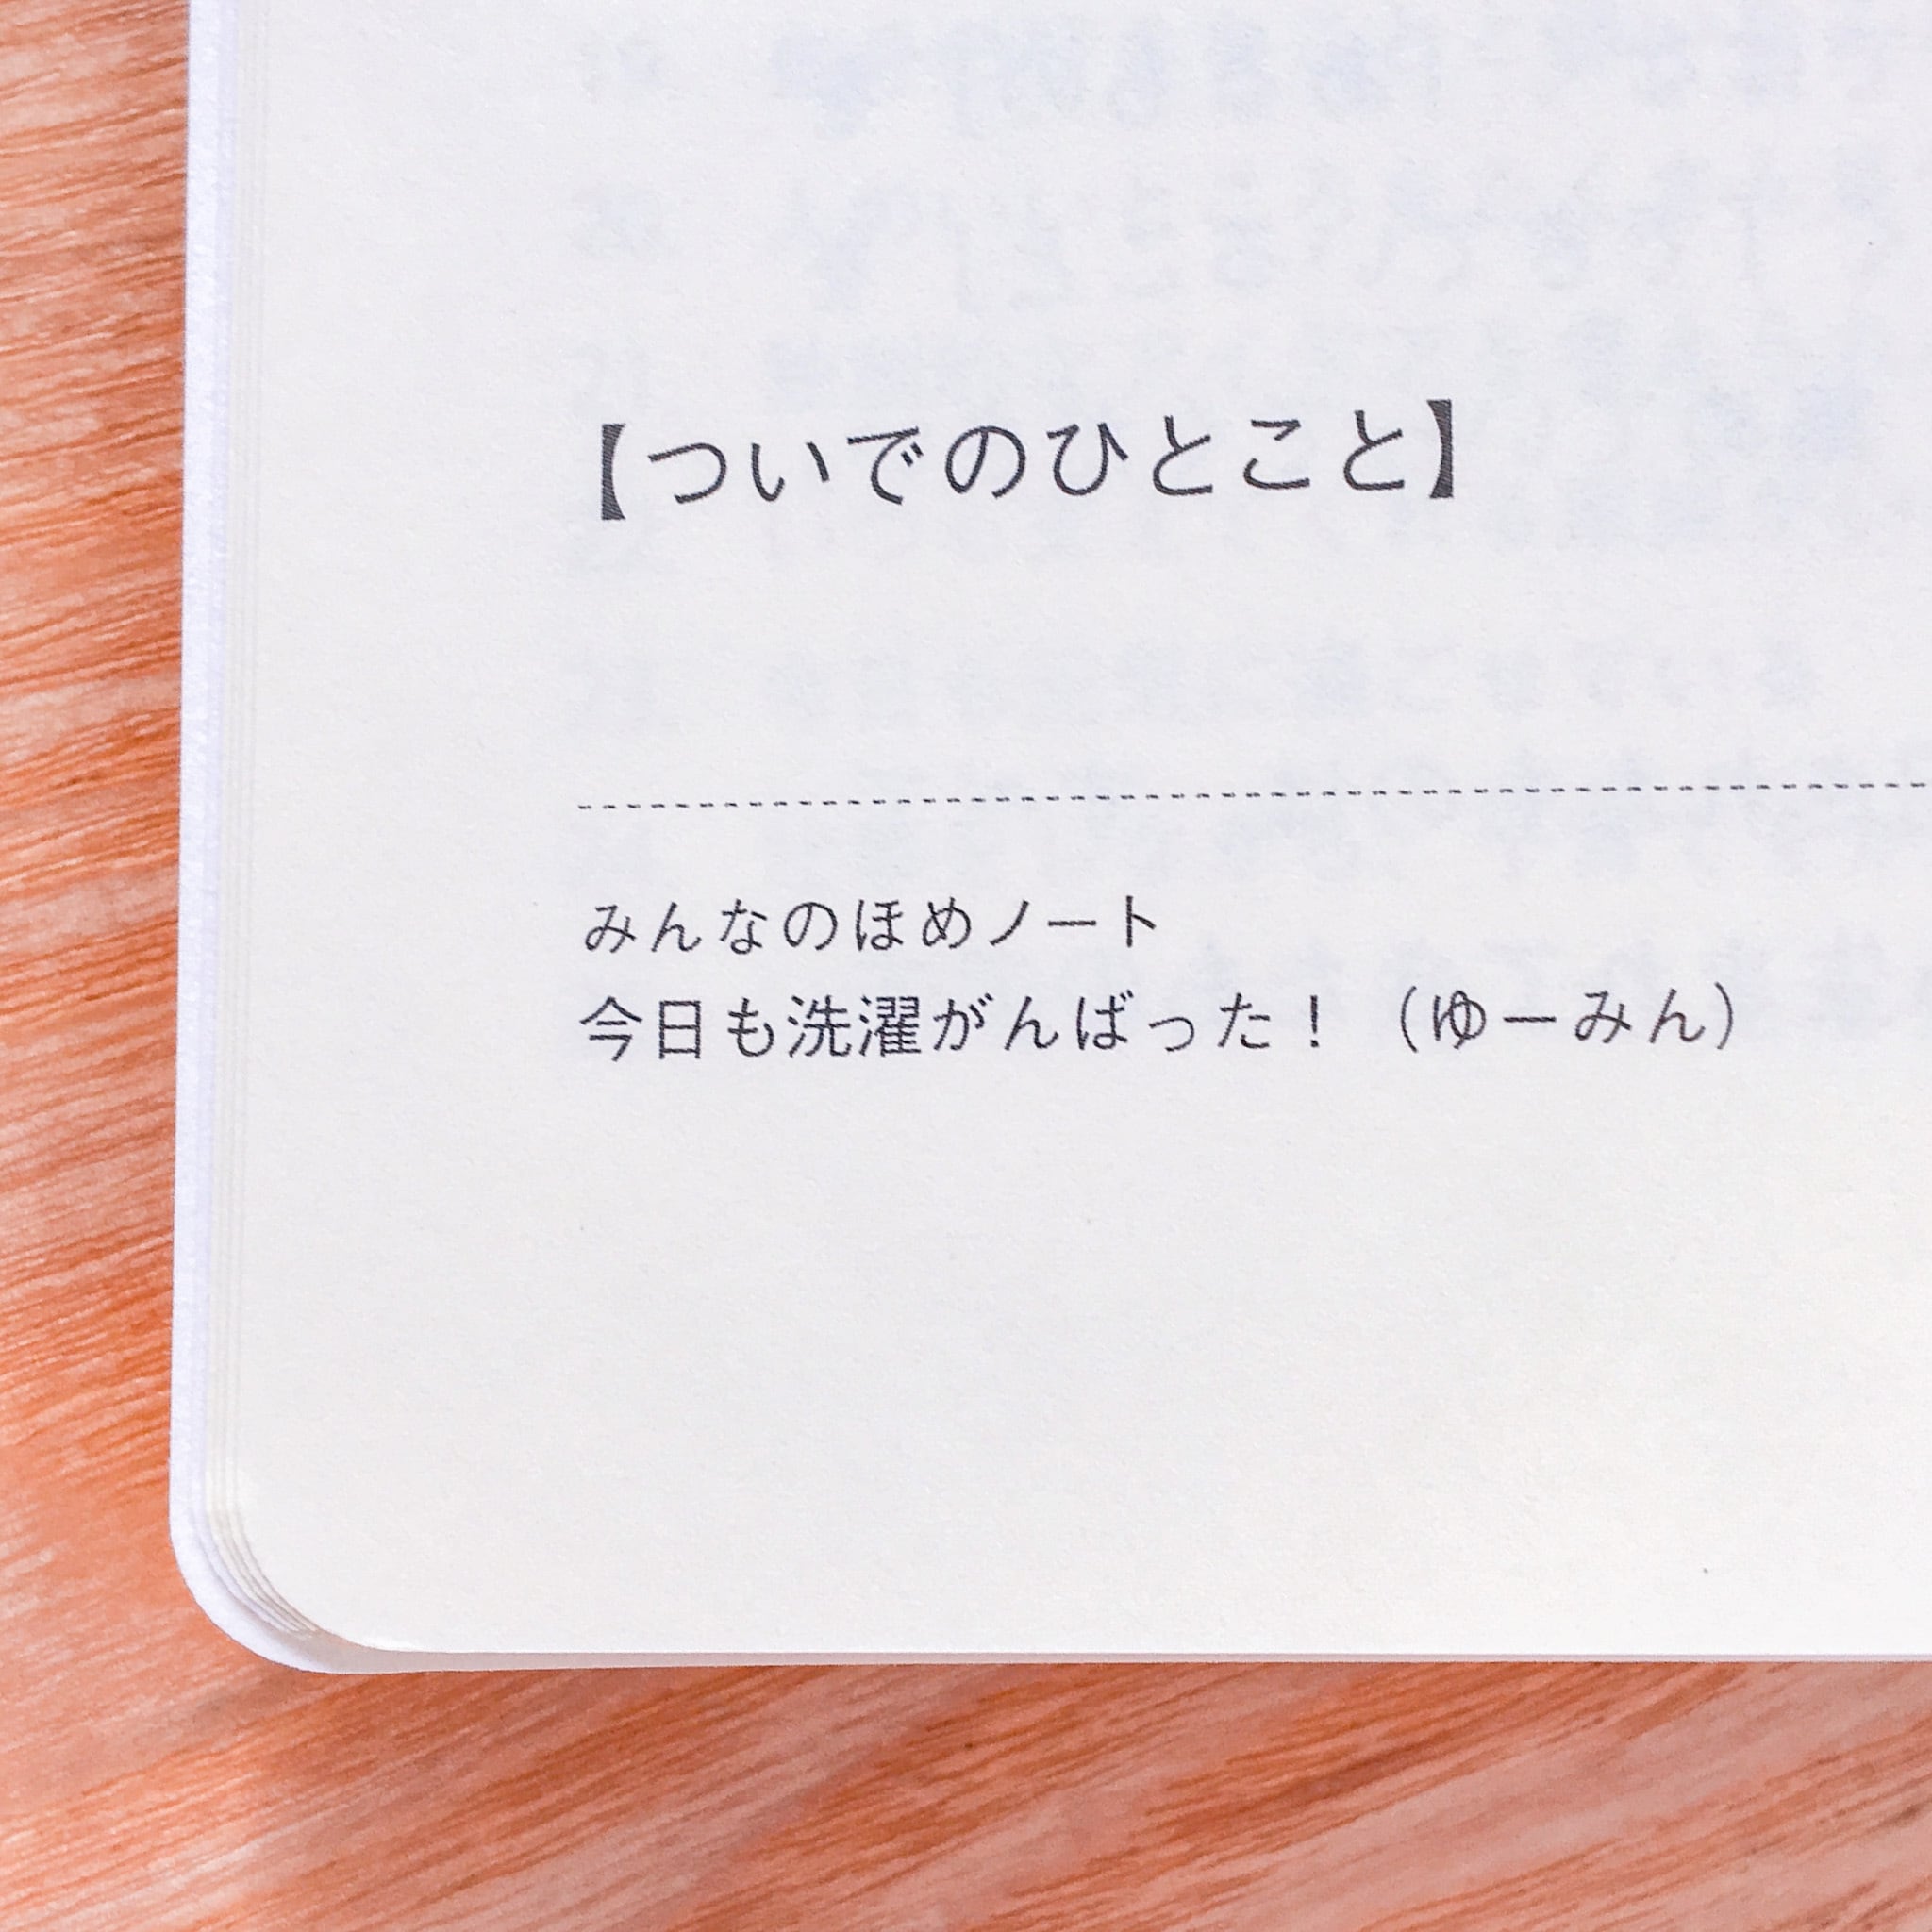 【ついでのひとこと】
みんなのほめノート
今日も洗濯がんばった！（ゆーみん）